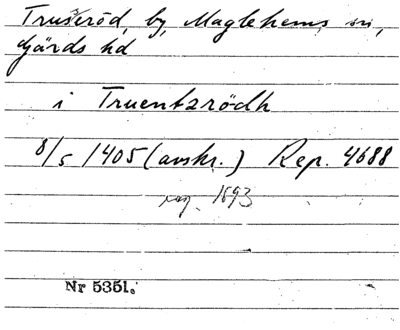 Trušeröd, by, Maglehems sn,
Gärds hd
i Truentzrödh
8/5 1405 (avskr.) Rep. 4688
1693
Nr 5351.